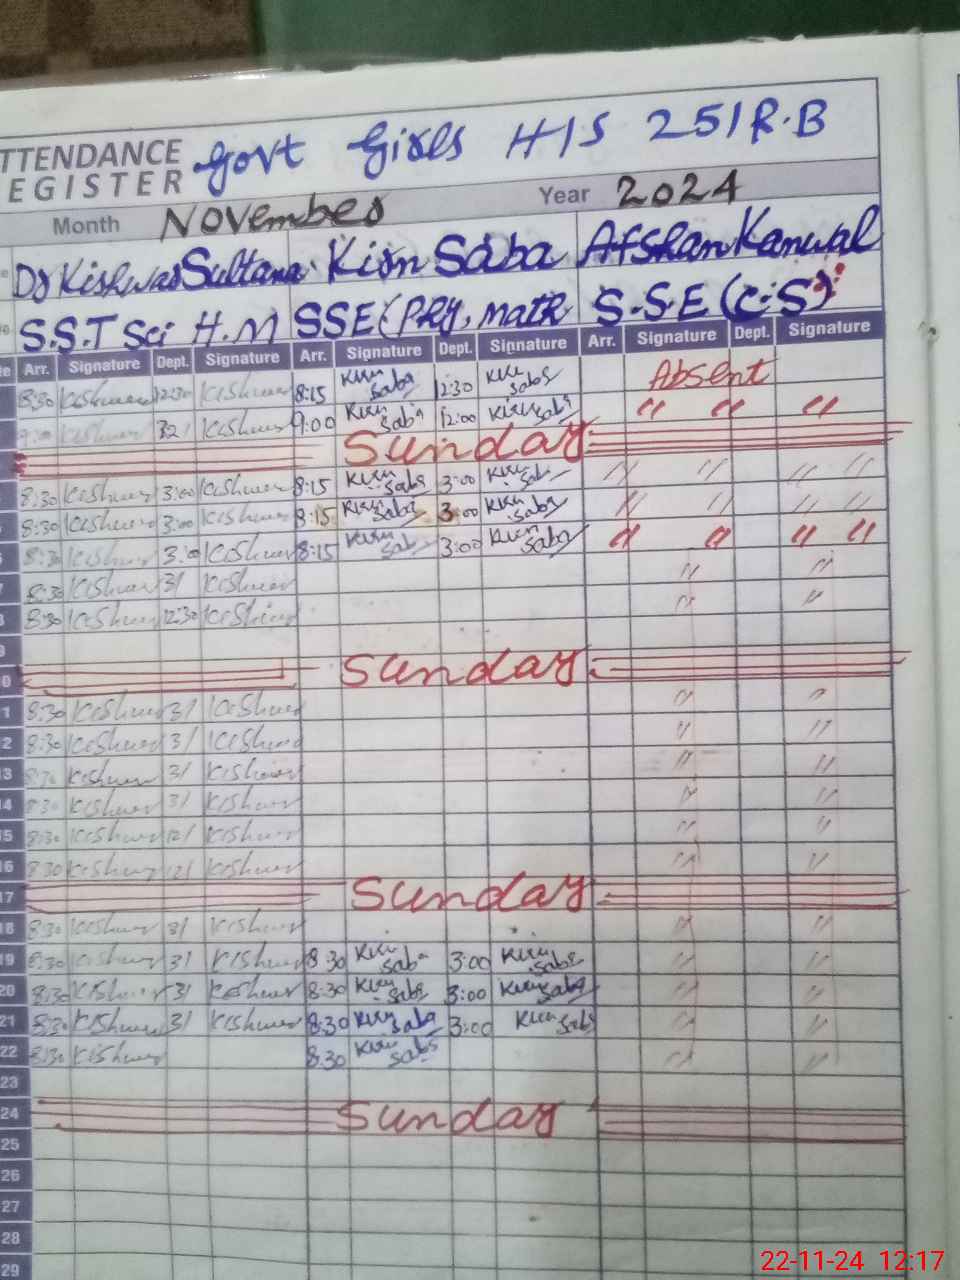 TTENDANCE Govt Girls H/S 251 R.B
EGISTER
Month November Year 2024
Dr Kishwar Sultana Kirn Saba Afshan Kanwal
S.S.T Sci H.M SSE (PHY, math S.S.E (C.S)
Arr. Signature Dept. Signature Arr. Signature Dept. Signature Arr. Signature Dept. Signature
8:30 Kishwar 12:30 Kishwar 8:15 Kirn Saba 12:30 Kirn Saba Absent
Kishwar 12/ Kishwar 9:00 Kirn Saba 12:00 Kirn Saba " " "
Sunday
8:30 Kishwar 3:00 Kishwar 8:15 Kirn Saba 3:00 Kirn Saba " " " "
8:30 Kishwar 3:00 Kishwar 8:15 Kirn Saba 3:00 Kirn Saba " " " "
8:30 Kishwar 3:00 Kishwar 8:15 Kirn Saba 3:00 Kirn Saba " " " "
7 8:30 Kishwar 3/ Kishwar " "
8 8:30 Kishwar 12:30 Kishwar " "
9
0 Sunday
1 8:30 Kishwar 3/ Kishwar " "
2 8:30 Kishwar 3/ Kishwar " "
13 8:30 Kishwar 3/ Kishwar " "
14 8:30 Kishwar 3/ Kishwar " "
15 8:30 Kishwar 12/ Kishwar " "
16 8:30 Kishwar 12/ Kishwar " "
17 Sunday
18 8:30 Kishwar 3/ Kishwar " "
19 8:30 Kishwar 3/ Kishwar 8:30 Kirn Saba 3:00 Kirn Saba " "
20 8:30 Kishwar 3/ Kishwar 8:30 Kirn Saba 3:00 Kirn Saba " "
21 8:30 Kishwar 3/ Kishwar 8:30 Kirn Saba 3:00 Kirn Saba " "
22 8:30 Kishwar 8:30 Kirn Saba " "
23
24 Sunday
25
26
27
28
29
22-11-24 12:17